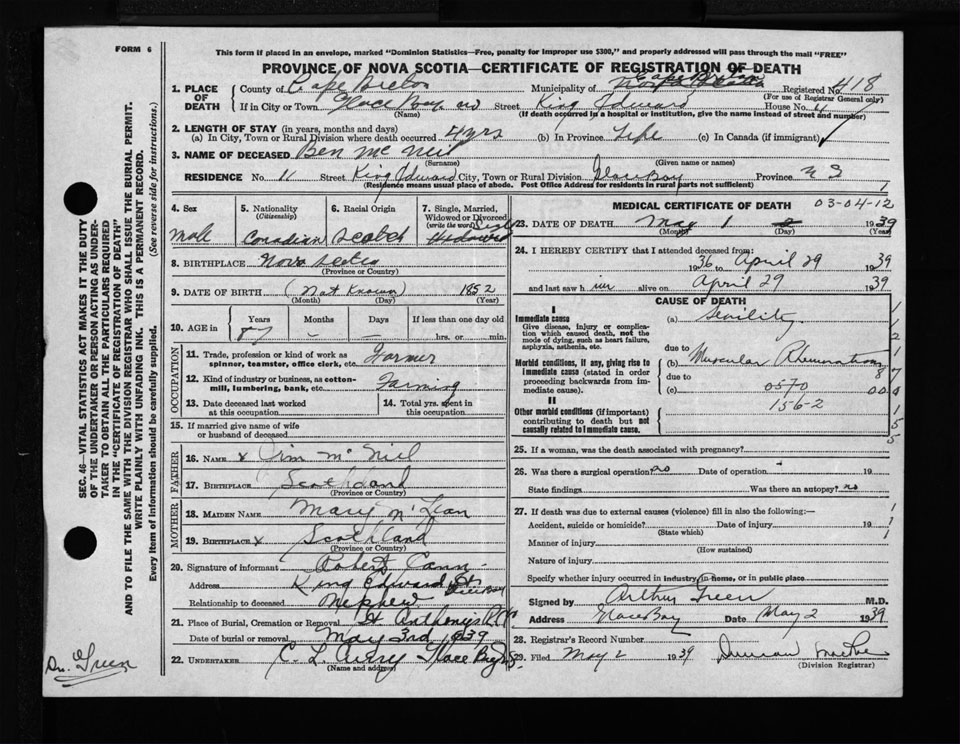 FORM 6
This form if placed in an envelope, marked "Dominion Statistics—Free, penalty for improper use $300," and properly addressed will pass through the mail "FREE"
PROVINCE OF NOVA SCOTIA—CERTIFICATE OF REGISTRATION OF DEATH
SEC. 46—VITAL STATISTICS ACT MAKES IT THE DUTY
OF THE UNDERTAKER OR PERSON ACTING AS UNDER-
TAKER TO OBTAIN ALL THE PARTICULARS REQUIRED
IN THE "CERTIFICATE OF REGISTRATION OF DEATH"
AND TO FILE THE SAME WITH THE DIVISION REGISTRAR WHO SHALL ISSUE THE BURIAL PERMIT.
WRITE PLAINLY WITH UNFADING INK. THIS IS A PERMANENT RECORD.
Every item of information should be carefully supplied. (See reverse side for instructions.)
1. PLACE OF DEATH
County of Cape Breton Municipality of Cape Breton Registered No 418
(For use of Registrar General only)
If in City or Town Glace Bay Street King Edward House No. 11
(Name) (If death occurred in a hospital or institution, give the name instead of street and number)
2. LENGTH OF STAY (in years, months and days)
(a) In City, Town or Rural Division where death occurred 4 yrs (b) In Province Life (c) In Canada (if immigrant)
3. NAME OF DECEASED Ben Mc Neil
(Surname) (Given name or names)
RESIDENCE No. 11 Street King Edward City, Town or Rural Division Glace Bay Province N S
(Residence means usual place of abode. Post Office Address for residents in rural parts not sufficient)
4. Sex Male
5. Nationality (Citizenship) Canadian
6. Racial Origin Scotch
7. Single, Married, Widowed or Divorced (write the word) Single
8. BIRTHPLACE Nova Scotia
(Province or Country)
9. DATE OF BIRTH (Not Known) 1852
(Month) (Day) (Year)
10. AGE in Years Months Days If less than one day old
87 – – hrs. or min.
OCCUPATION
11. Trade, profession or kind of work as spinner, teamster, office clerk, etc. Farmer
12. Kind of industry or business, as cotton-mill, lumbering, bank, etc. Farming
13. Date deceased last worked at this occupation
14. Total yrs. spent in this occupation
15. If married give name of wife or husband of deceased
FATHER
16. NAME x Jim Mc Neil
17. BIRTHPLACE Scothland
(Province or Country)
MOTHER
18. MAIDEN NAME Mary Mc Lean
19. BIRTHPLACE x Scothland
(Province or Country)
20. Signature of informant Robert Cann
Address King Edward St Glace Bay
Relationship to deceased Nephew
21. Place of Burial, Cremation or Removal St Anthonys R.C.
Date of burial or removal May 3rd, 1939
22. UNDERTAKER C L Curry Glace Bay
(Name and address)
Dr. Green
MEDICAL CERTIFICATE OF DEATH 03-04-12
23. DATE OF DEATH May 1 1939
(Month) (Day) (Year)
24. I HEREBY CERTIFY that I attended deceased from:
1936 to April 29 1939
and last saw h im alive on April 29 1939
CAUSE OF DEATH
I
Immediate cause (a) Senility
Give disease, injury or complication which caused death, not the mode of dying, such as heart failure, asphyxia, asthenia, etc.
due to
Morbid conditions, if any, giving rise to immediate cause (stated in order proceeding backwards from immediate cause). (b) Muscular Rheumatism
due to
(c) 0570
156-2
II
Other morbid conditions (if important) contributing to death but not causally related to immediate cause.
25. If a woman, was the death associated with pregnancy?
26. Was there a surgical operation? no Date of operation 19
State findings Was there an autopsy? no
27. If death was due to external causes (violence) fill in also the following:—
Accident, suicide or homicide? Date of injury 19
(State which)
Manner of injury
(How sustained)
Nature of injury
Specify whether injury occurred in industry, in home, or in public place
Signed by Arthur Green M.D.
Address Glace Bay Date May 2 1939
28. Registrar's Record Number
29. Filed May 2 1939 Duncan
(Division Registrar)